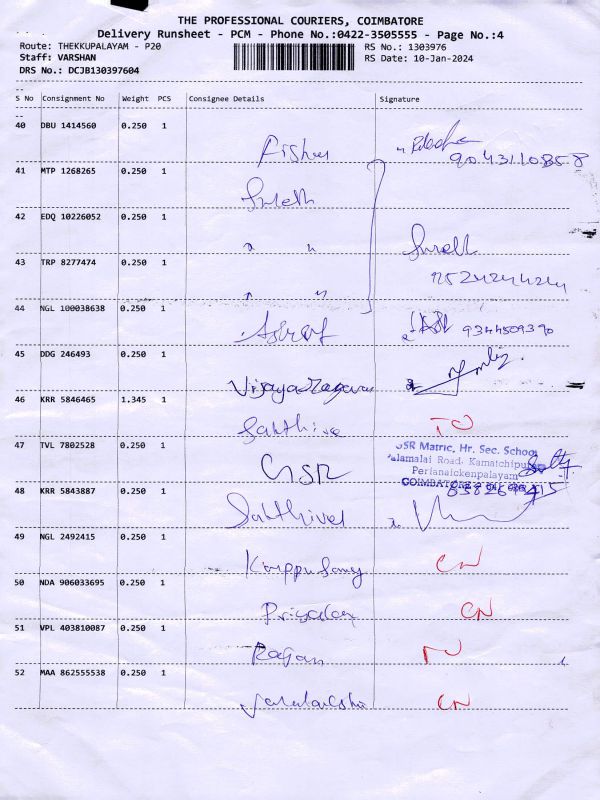 THE PROFESSIONAL COURIERS, COIMBATORE
Delivery Runsheet - PCM - Phone No.:0422-3505555 - Page No.:4
Route: THEKKUPALAYAM - P20 RS No.: 1303976
Staff: VARSHAN RS Date: 10-Jan-2024
DRS No.: DCJB130397604
S No Consignment No Weight PCS Consignee Details Signature
40 DBU 1414560 0.250 1
41 MTP 1268265 0.250 1
42 EDQ 10226052 0.250 1
43 TRP 8277474 0.250 1
44 NGL 100038638 0.250 1
9344509390
45 DDG 246493 0.250 1
Vijayaragavan
46 KRR 5846465 1.345 1
Sakthivel
47 TVL 7802528 0.250 1
GSR
GSR Matric. Hr. Sec. School
Palamalai Road, Kamatchipu
Perianaickenpalayam
COIMBATORE
48 KRR 5843887 0.250 1
Sakthivel
49 NGL 2492415 0.250 1
Karppusamy CN
50 NDA 906033695 0.250 1
CN
51 VPL 403810087 0.250 1
Rajan
52 MAA 862555538 0.250 1
CN